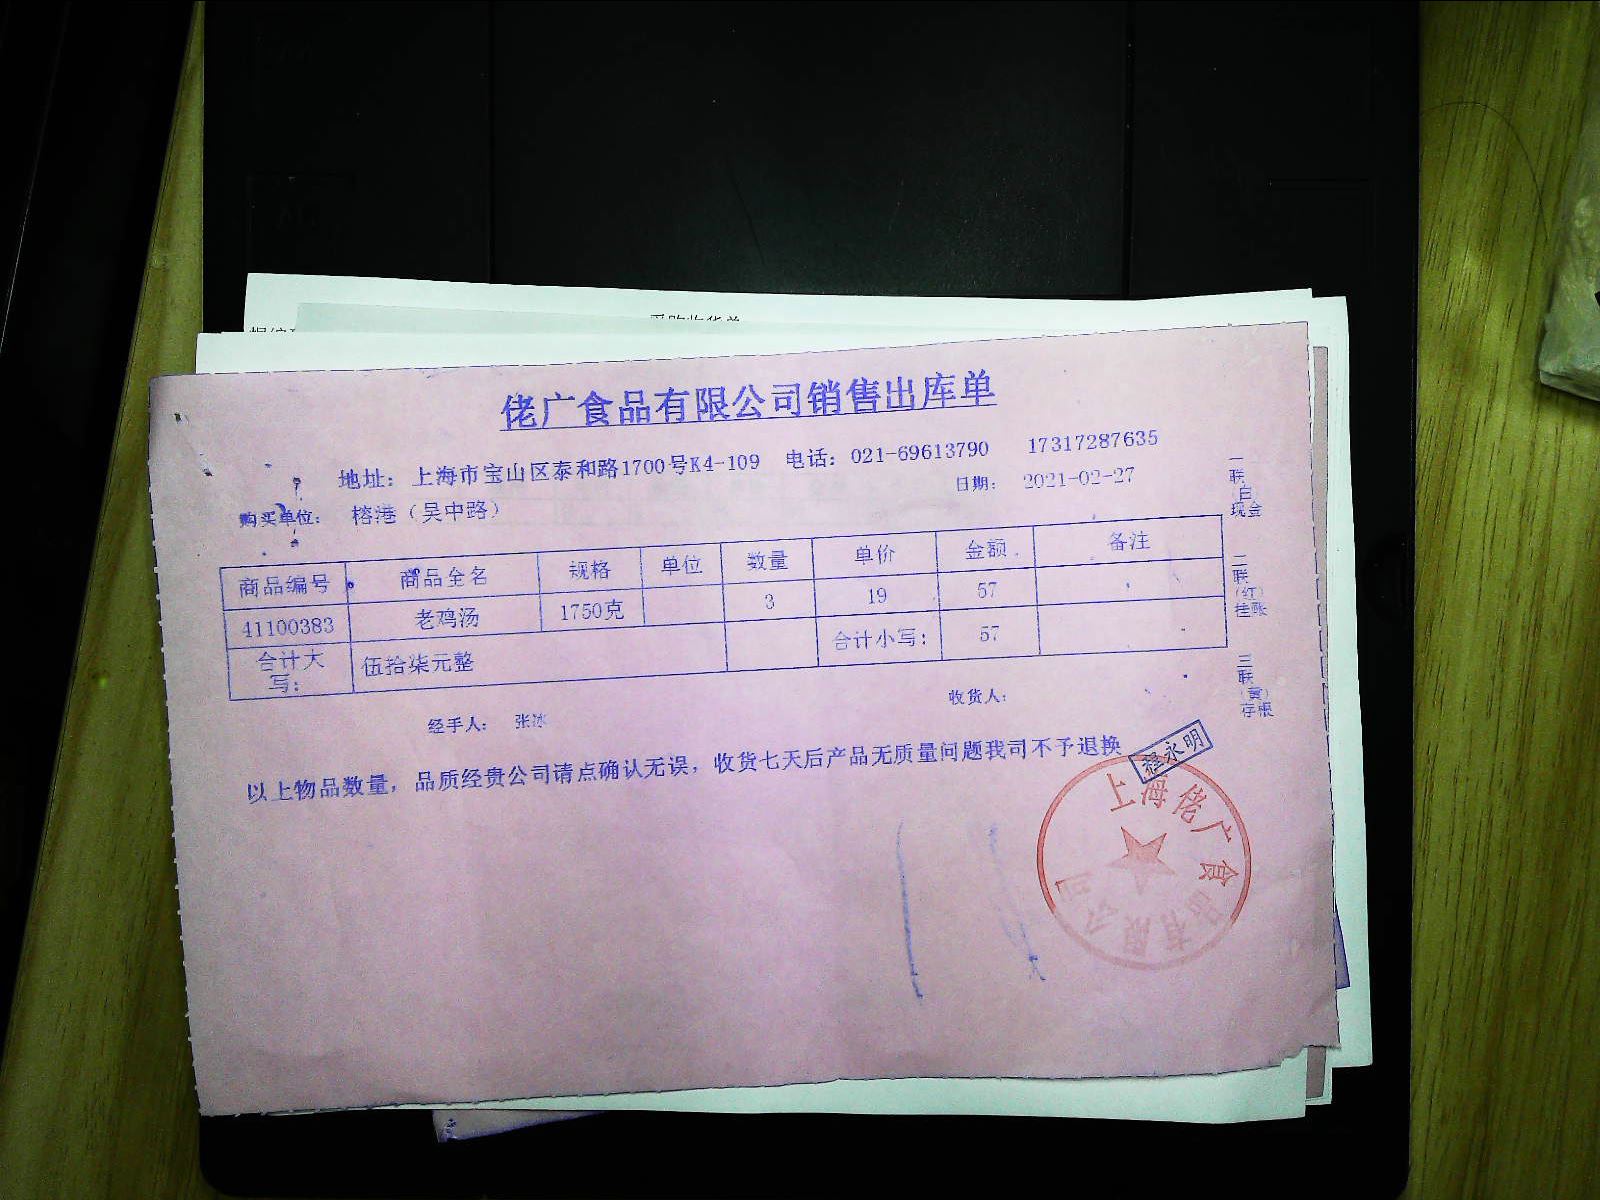 佬广食品有限公司销售出库单
地址：上海市宝山区泰和路1700号K4-109 电话：021-69613790 17317287635
购买单位： 榕港（吴中路） 日期： 2021-02-27
商品编号 商品全名 规格 单位 数量 单价 金额 备注
41100383 老鸡汤 1750克 3 19 57
合计大写： 伍拾柒元整 合计小写： 57
经手人： 张冰 收货人：
以上物品数量，品质经贵公司请点确认无误，收货七天后产品无质量问题我司不予退换
一联（白）现金
二联（红）挂账
三联（黄）存根
程永明
上海佬广食品有限公司